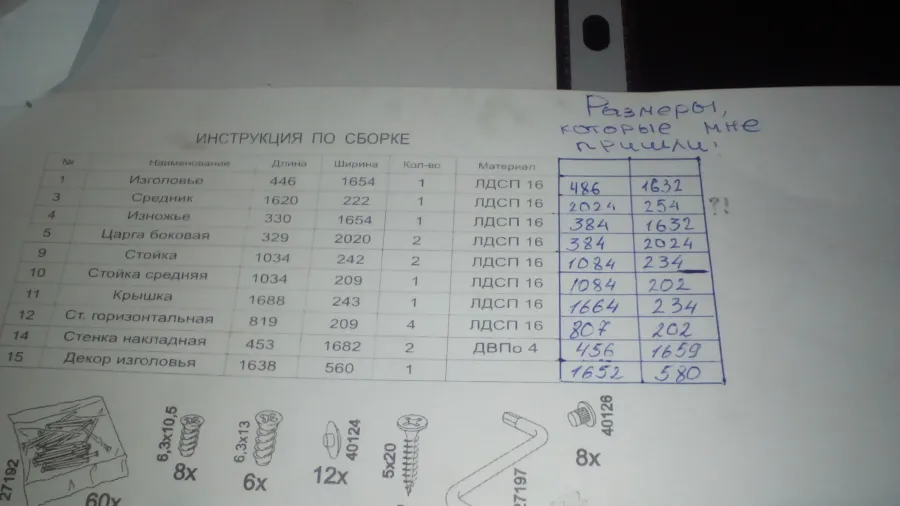 Размеры,
которые мне
пришли:
ИНСТРУКЦИЯ ПО СБОРКЕ
№ Наименование Длина Ширина Кол-во Материал
1 Изголовье 446 1654 1 ЛДСП 16 486 1632
3 Средник 1620 222 1 ЛДСП 16 2024 254 ?!
4 Изножье 330 1654 1 ЛДСП 16 384 1632
5 Царга боковая 329 2020 2 ЛДСП 16 384 2024
9 Стойка 1034 242 2 ЛДСП 16 1084 234
10 Стойка средняя 1034 209 1 ЛДСП 16 1084 202
11 Крышка 1688 243 1 ЛДСП 16 1664 234
12 Ст. горизонтальная 819 209 4 ЛДСП 16 807 202
14 Стенка накладная 453 1682 2 ДВПо 4 456 1659
15 Декор изголовья 1638 560 1 1652 580
27192
60x
6,3x10,5
8x
6,3x13
6x
40124
12x
5x20
27197
40126
8x